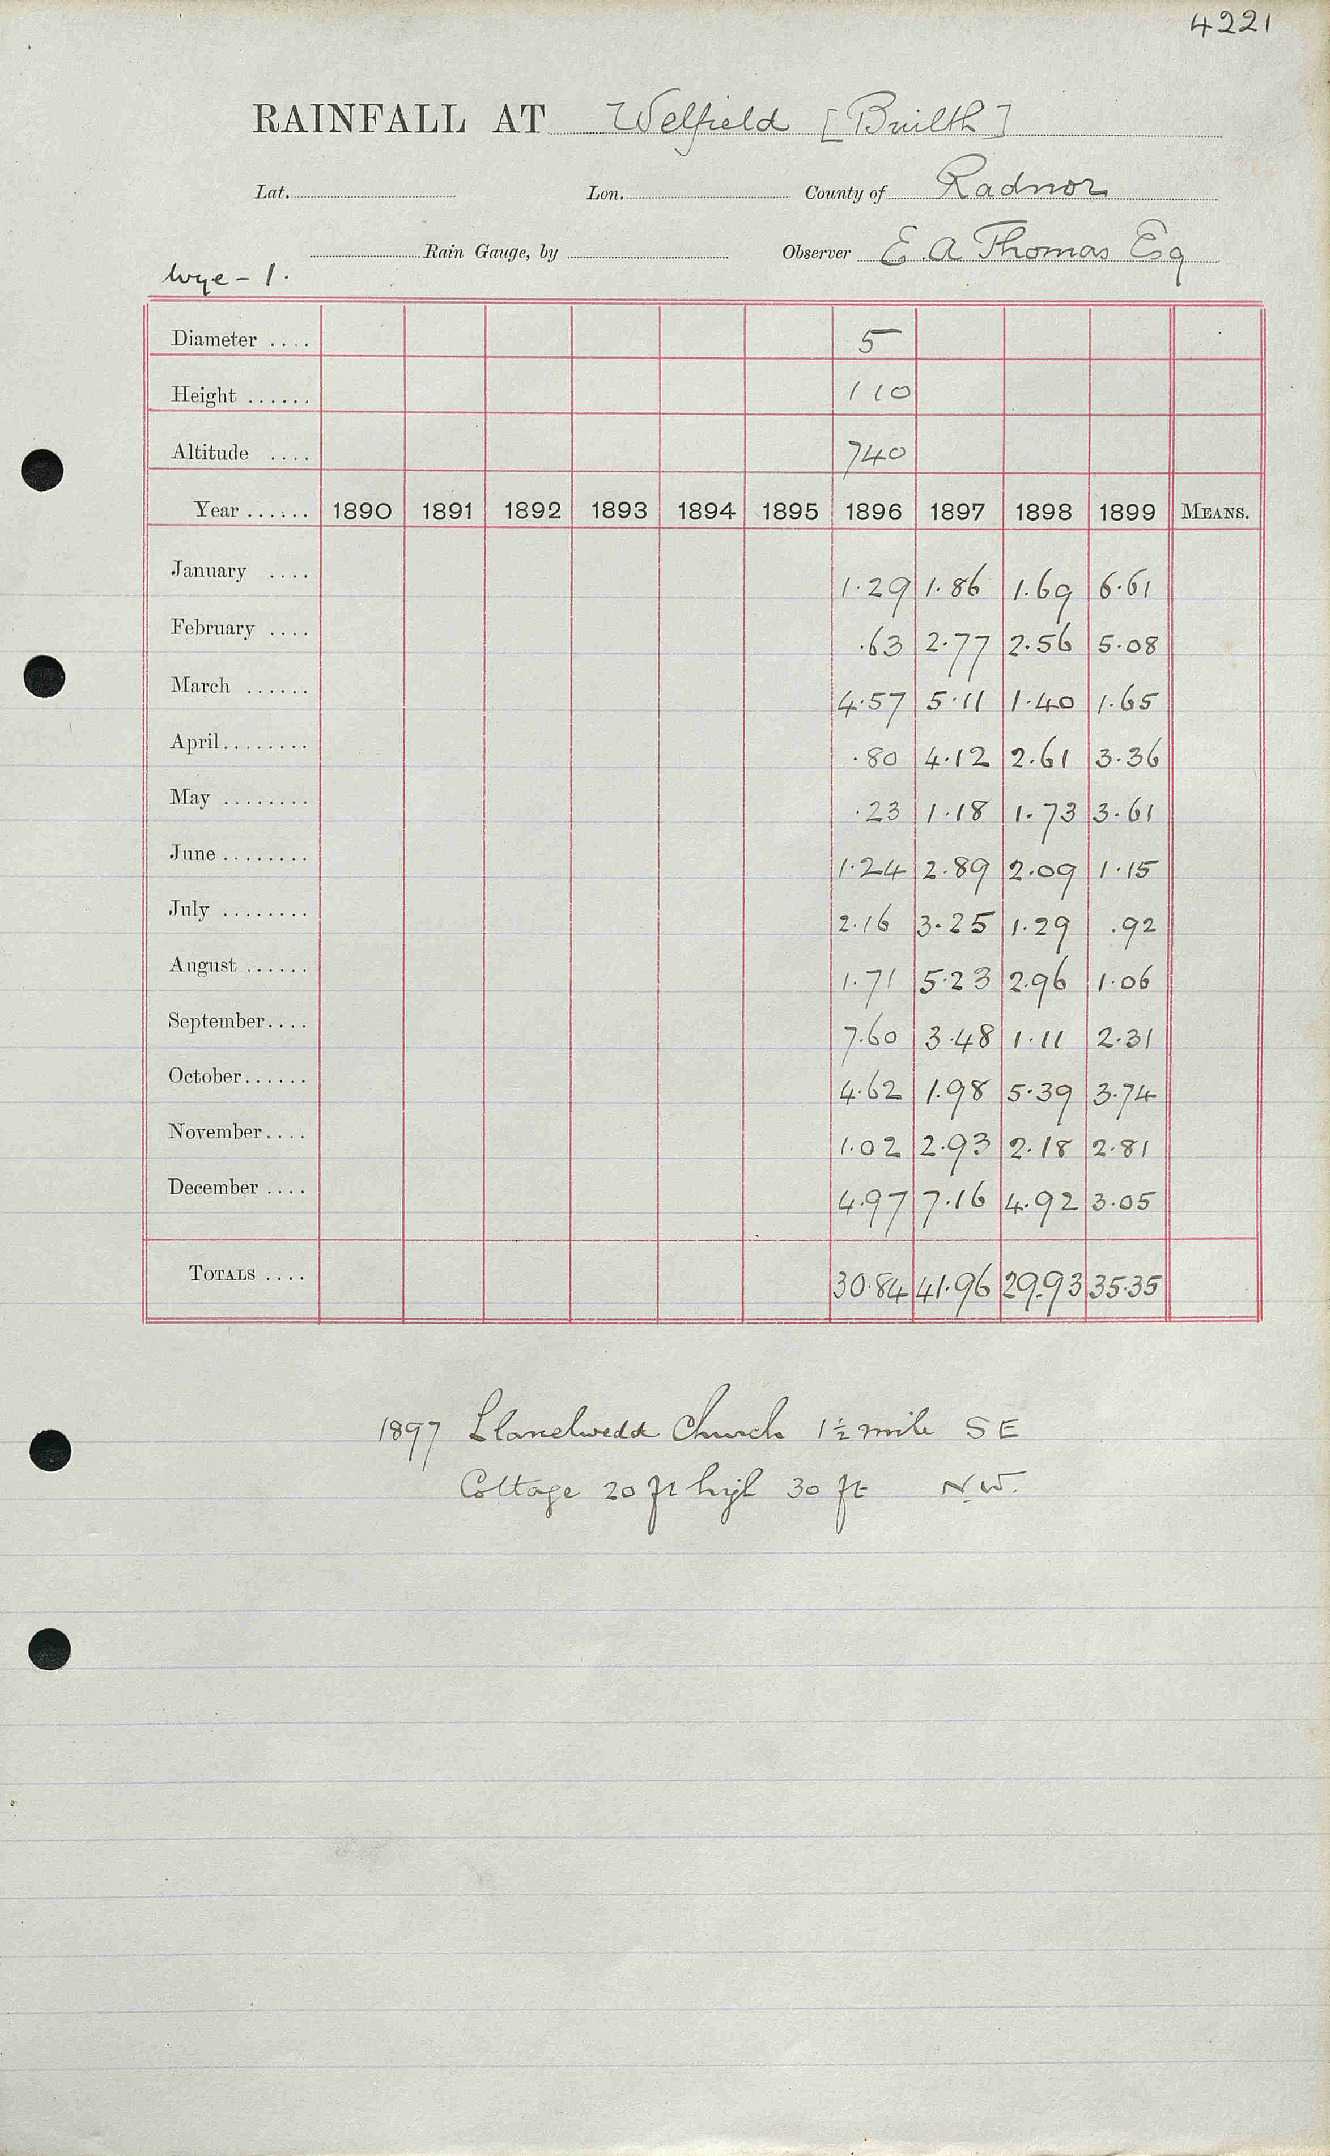 4221
RAINFALL AT Welfield [Builth]
Lat. Lon. County of Radnor
Rain Gauge, by Observer E A Thomas Esq
Wye - 1.
Diameter .... 5
Height ...... 110
Altitude .... 740
Year ...... 1890 1891 1892 1893 1894 1895 1896 1897 1898 1899 MEANS.
January .... 1.29 1.86 1.69 6.61
February .... .63 2.77 2.56 5.08
March ...... 4.57 5.11 1.40 1.65
April........ .80 4.12 2.61 3.36
May ........ .23 1.18 1.73 3.61
June ........ 1.24 2.89 2.09 1.15
July ........ 2.16 3.25 1.29 .92
August ...... 1.71 5.23 2.96 1.06
September.... 7.60 3.48 1.11 2.31
October...... 4.62 1.98 5.39 3.74
November.... 1.02 2.93 2.18 2.81
December .... 4.97 7.16 4.92 3.05
TOTALS .... 30.84 41.96 29.93 35.35
1897 Llanelwedd Church 1½ mile SE
Cottage 20 ft high 30 ft N.W.